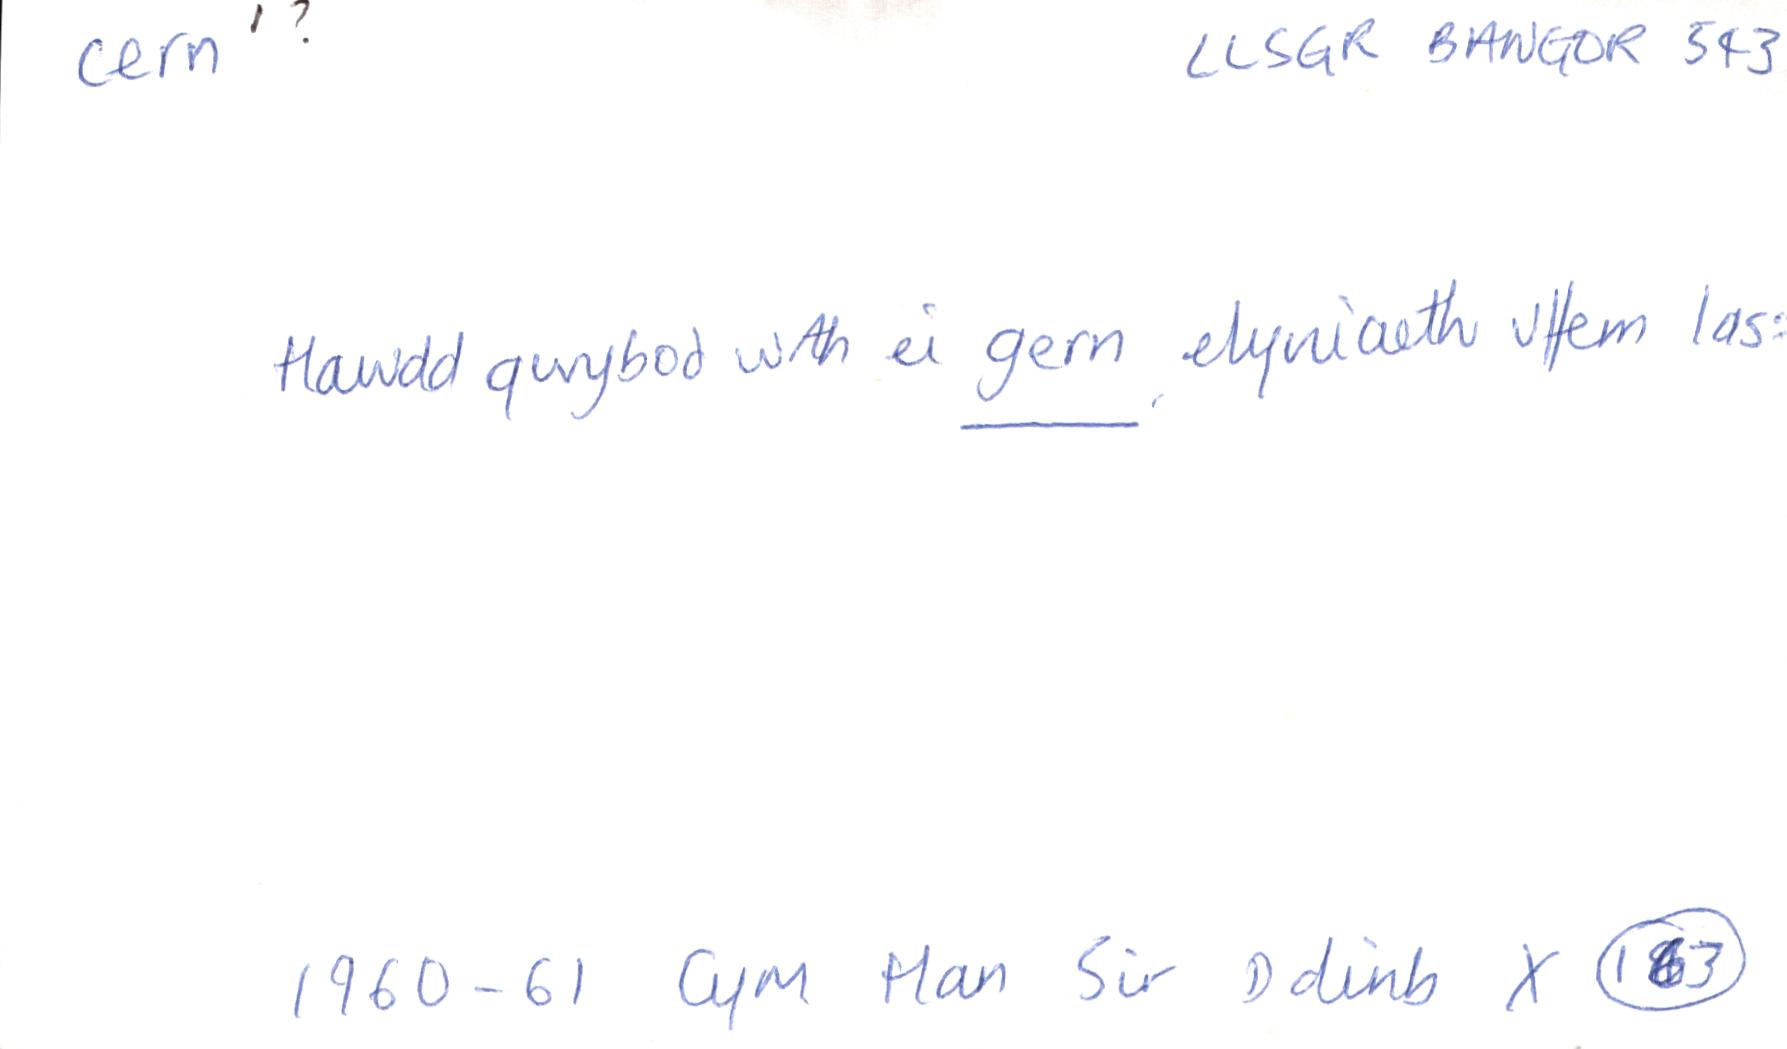 cern¹?
LLSGR BANGOR 543
Hawdd gwybod wrth ei gern, elyniaeth Uffern las:
1960-61 Cym Han Sir Ddinb X 163